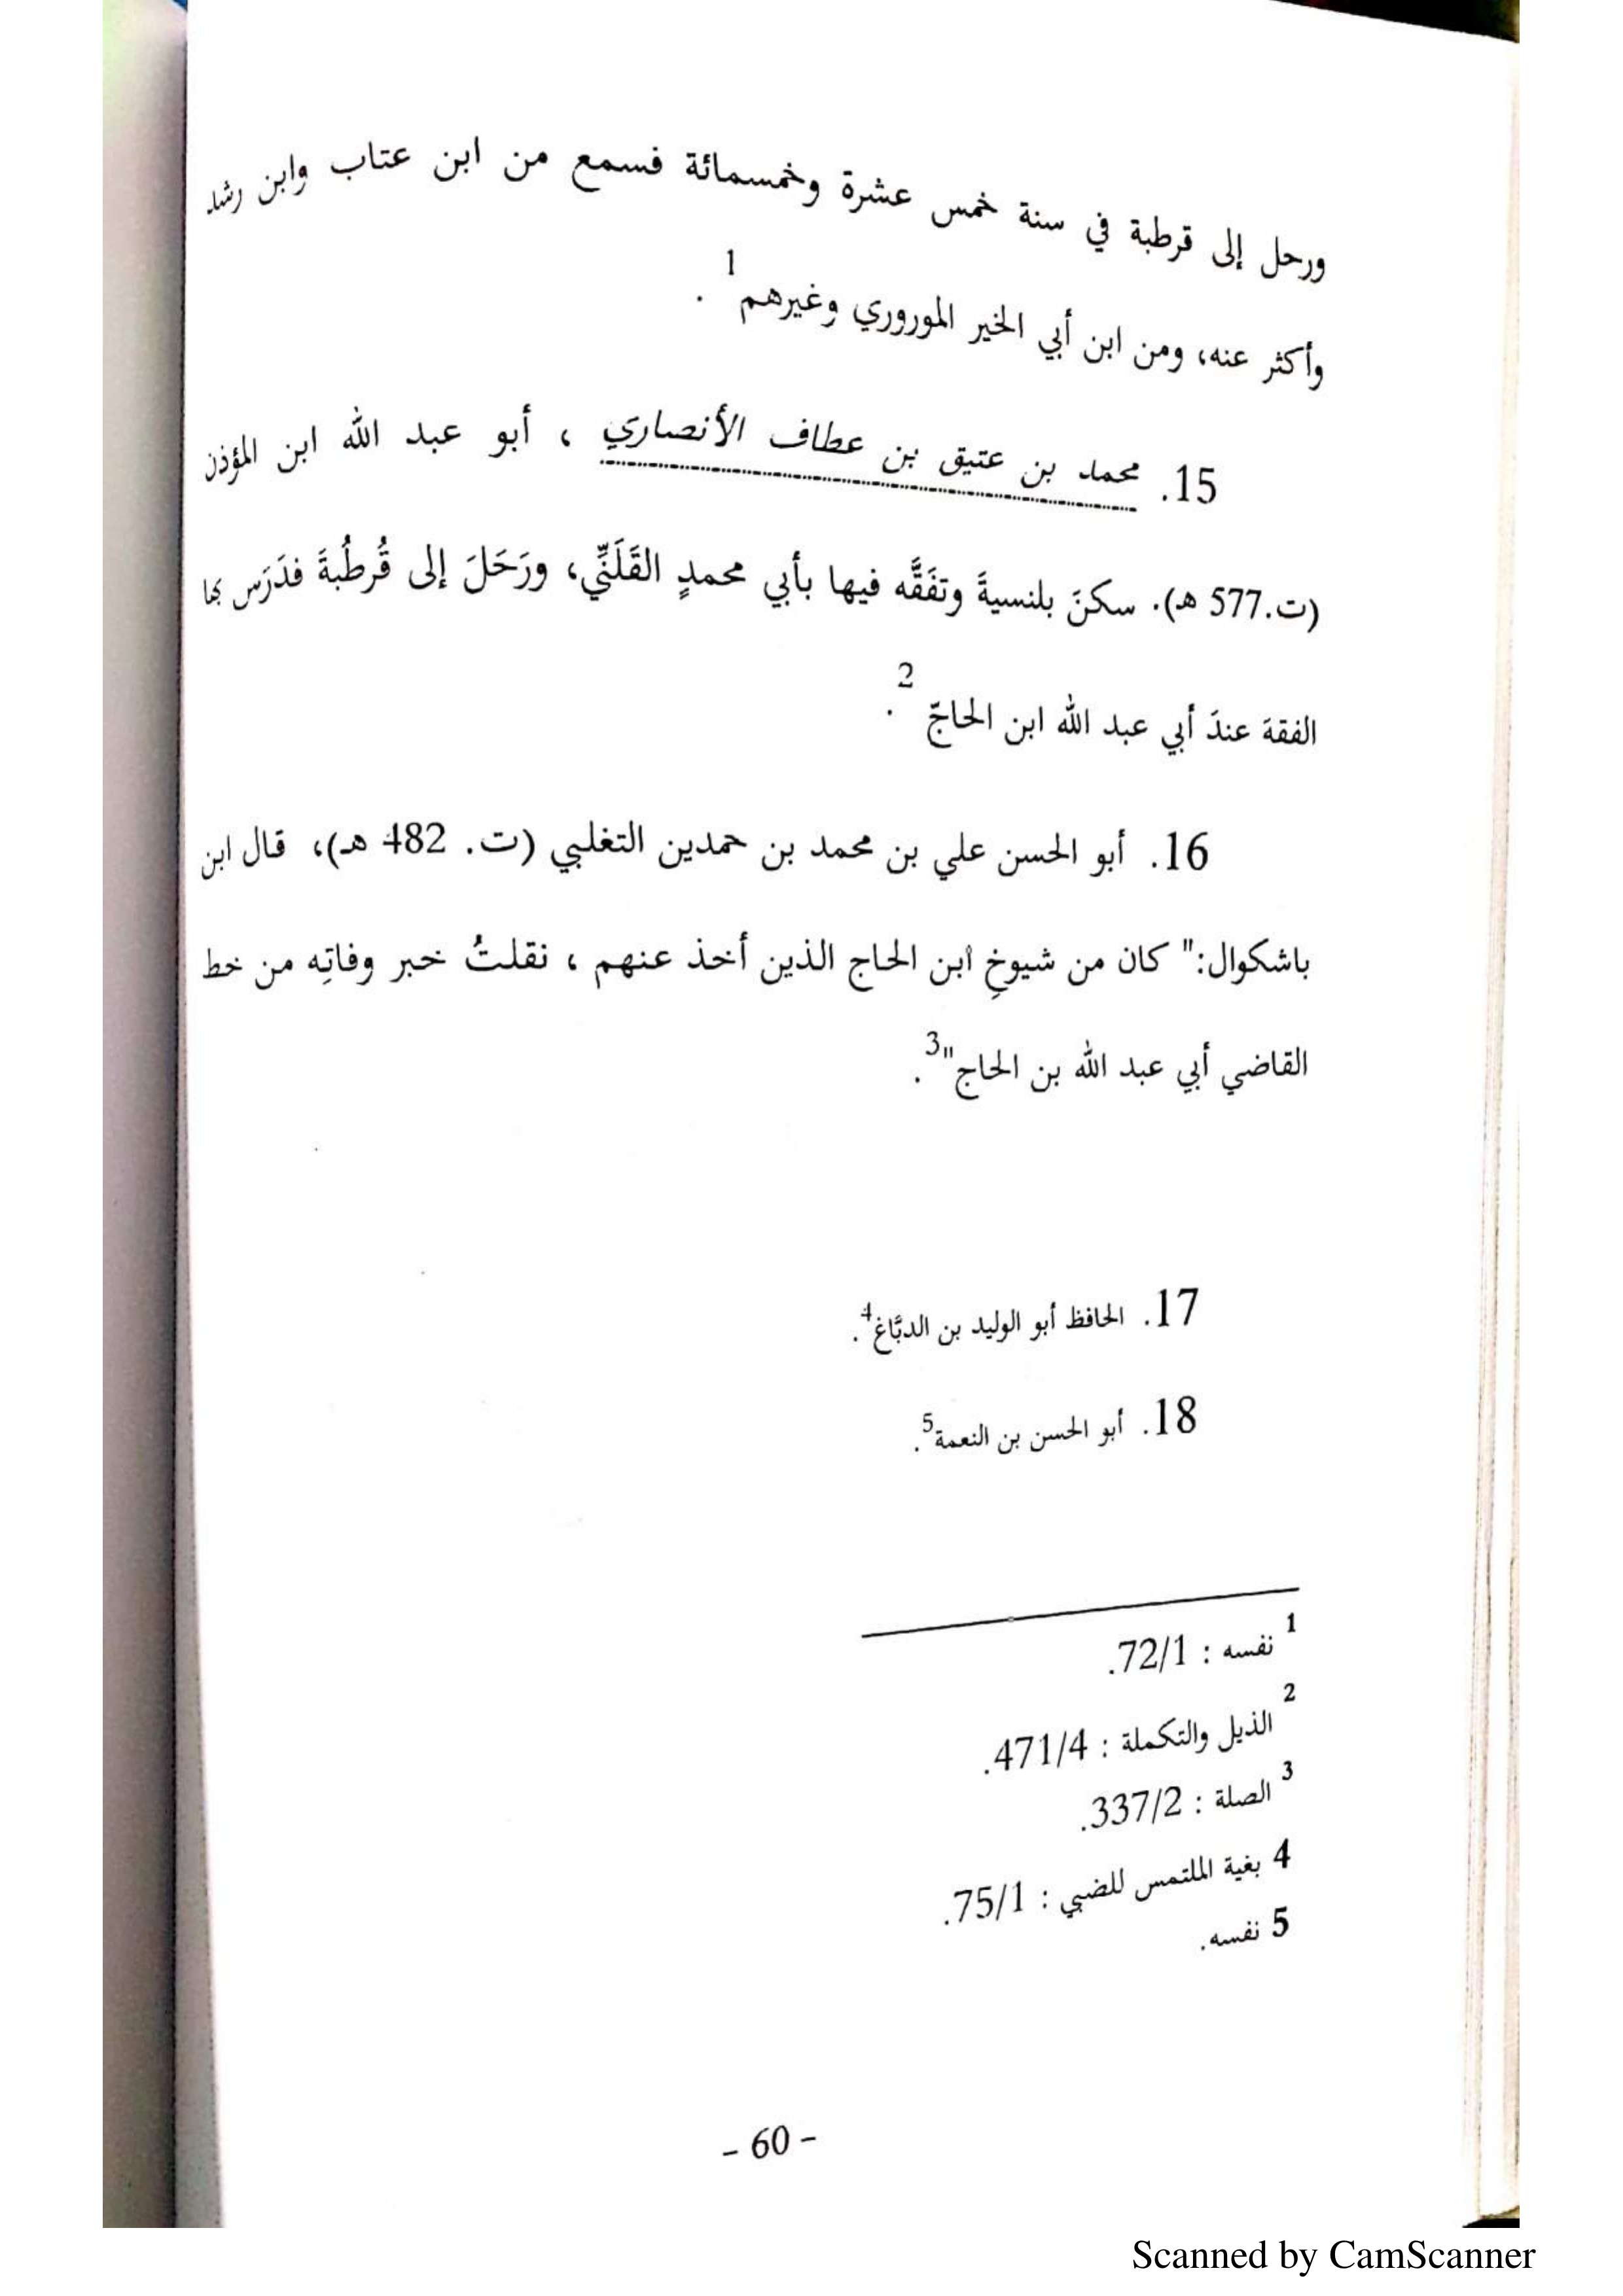 ورحل إلى قرطبة في سنة خمس عشرة وخمسمائة فسمع من ابن عتاب وابن رشد
وأكثر عنه، ومن ابن أبي الخير الموروري وغيرهم1 .
15. محمد بن عتيق بن عطاف الأنصاري ، أبو عبد الله ابن المؤذن
(ت.577 هـ). سكنَ بلنسيةَ وتفَقَّه فيها بأبي محمدٍ القَلَنِّي، ورَحَلَ إلى قُرطُبةَ فدَرَس بها
الفقهَ عندَ أبي عبد الله ابن الحاجّ 2 .
16. أبو الحسن علي بن محمد بن حمدين التغلبي (ت. 482 هـ)، قال ابن
باشكوال:" كان من شيوخِ ابن الحاج الذين أخذ عنهم ، نقلتُ خبر وفاتِه من خط
القاضي أبي عبد الله بن الحاج"3.
17. الحافظ أبو الوليد بن الدبَّاغ4.
18. أبو الحسن بن النعمة5.
1 نفسه : 72/1.
2 الذيل والتكملة : 471/4.
3 الصلة : 337/2.
4 بغية الملتمس للضبي : 75/1.
5 نفسه.
- 60 -
Scanned by CamScanner